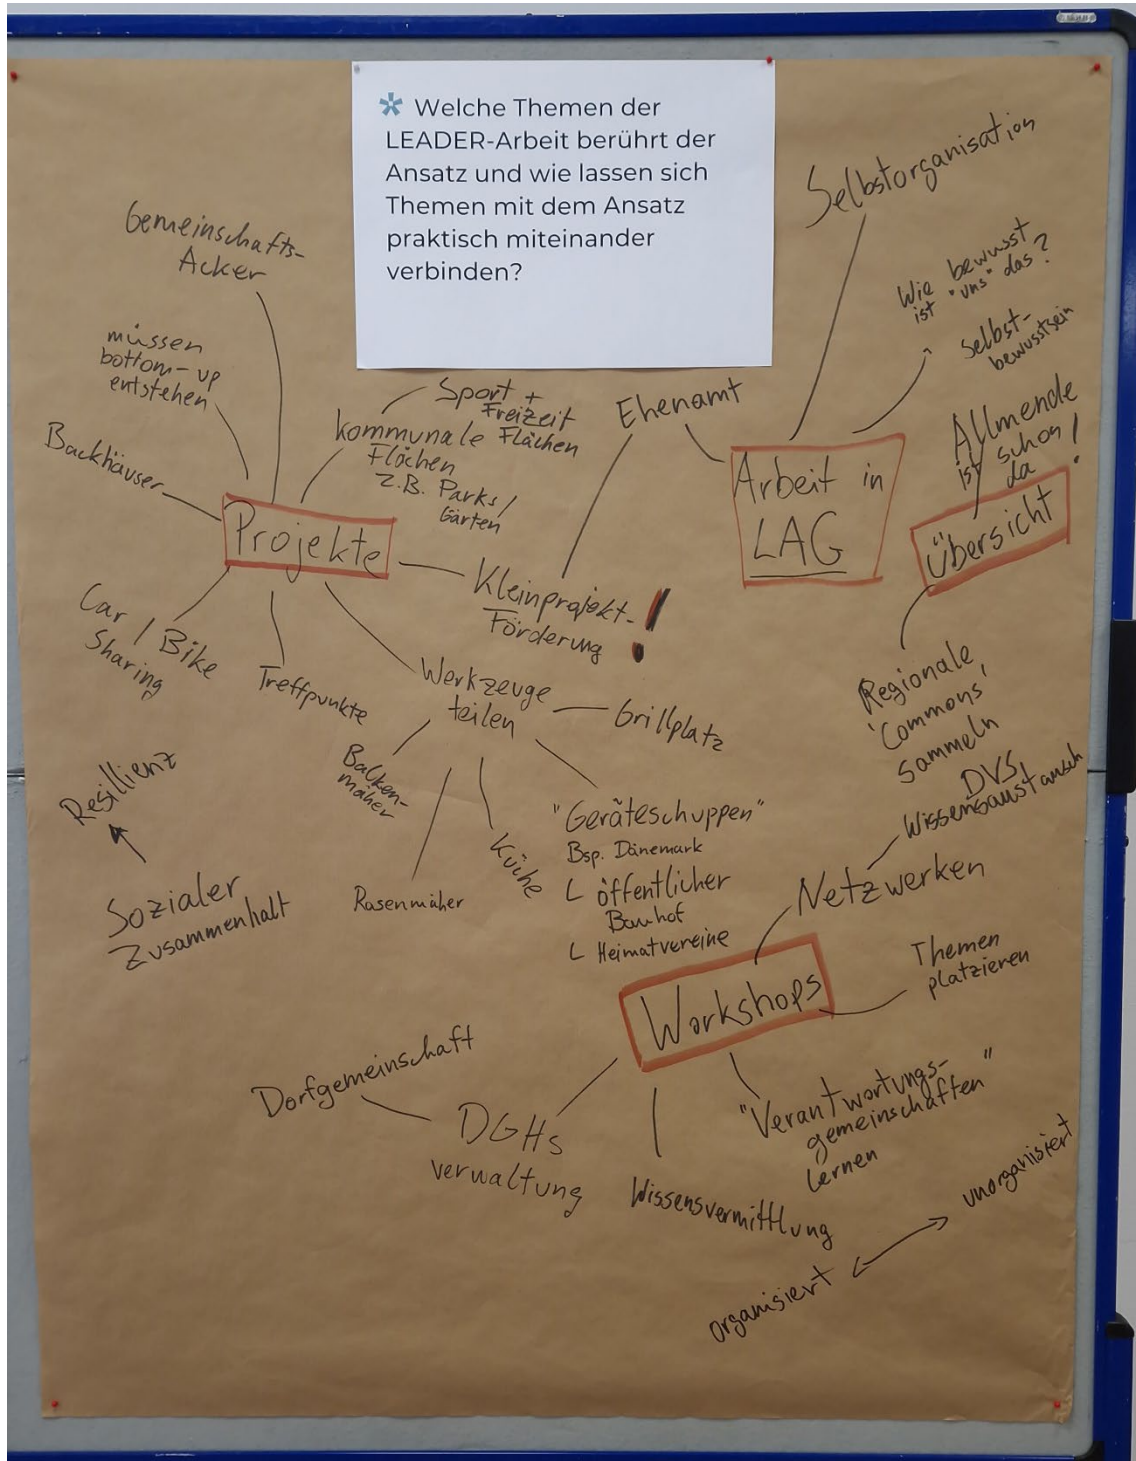 * Welche Themen der
LEADER-Arbeit berührt der
Ansatz und wie lassen sich
Themen mit dem Ansatz
praktisch miteinander
verbinden?
Gemeinschafts-
Acker
müssen
bottom-up
entstehen
Backhäuser
Projekte
Sport +
Freizeit
Flächen
kommunale
Flächen
z.B. Parks/
Gärten
Kleinprojekt-
Förderung !
Ehrenamt
Car / Bike
Sharing
Treffpunkte
Werkzeuge
teilen
Grillplatz
Balken-
mäher
Rasenmäher
Küche
"Geräteschuppen"
Bsp. Dänemark
öffentlicher
Bauhof
Heimatvereine
Resillienz
Sozialer
Zusammenhalt
Selbstorganisation
Wie bewusst
ist "uns" das?
Selbst-
bewusstsein
Arbeit in
LAG
Allmende
ist schon
da !
Übersicht
Regionale
'Commons'
sammeln
DVS,
Wissensaustausch
Netzwerken
Themen
platzieren
Workshops
"Verantwortungs-
gemeinschaften"
lernen
Wissensvermittlung
DGHs
verwaltung
Dorfgemeinschaft
organisiert
unorganisiert